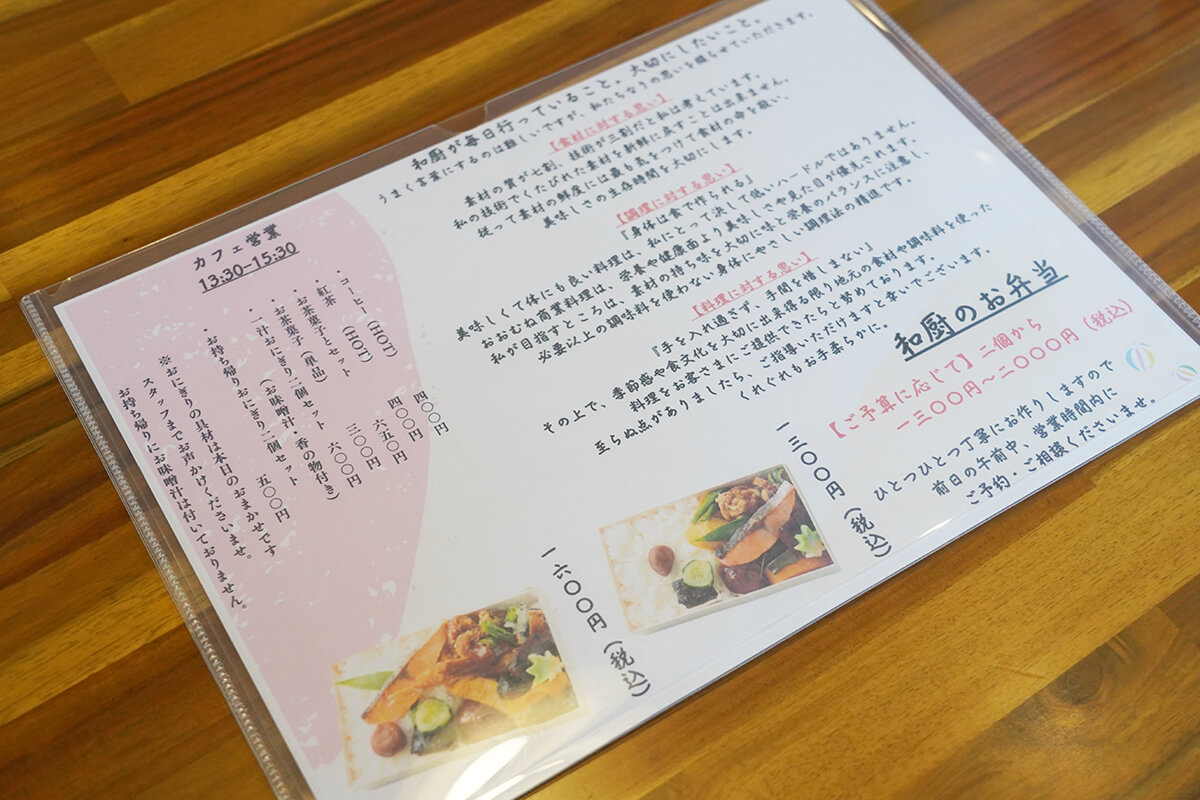 和厨が毎日行っていること。大切にしたいこと。
うまく言葉にするのは難しいですが、私たちなりの思いを綴らせていただきます。
【食材に対する思い】
素材の質が七割、技術が三割だと私は考えています。
私の技術でくたびれた素材を新鮮に戻すことは出来ません。
従って素材の鮮度には最も気をつけて食材の命を敬い、
美味しさの生存時間を大切にします。
【調理に対する思い】
『身体は食で作られる』
私にとって決して低いハードルではありません。
美味しくて体にも良い料理は、栄養や健康面より美味しさや見た目が優先されます。
おおむね商業料理は、
私が目指すところは、素材の持ち味を大切に味と栄養のバランスに注意し、
必要以上の調味料を使わない身体にやさしい調理法の精進です。
【料理に対する思い】
『手を入れ過ぎず、手間を惜しまない』
その上で、季節感や食文化を大切に出来得る限り地元の食材や調味料を使った
料理をお客さまにご提供できたらと努めております。
至らぬ点がありましたら、ご指導いただけますと幸いでございます。
くれぐれもお手柔らかに。
和厨のお弁当
【ご予算に応じて】二個から
一三〇〇円～二〇〇〇円（税込）
ひとつひとつ丁寧にお作りしますので
前日の午前中、営業時間内に
ご予約・ご相談くださいませ。
一三〇〇円（税込）
一六〇〇円（税込）
カフェ営業
13:30-15:30
・コーヒー（HOT） 四〇〇円
・紅茶（HOT） 四〇〇円
・お茶菓子とセット 六五〇円
・お茶菓子（単品） 三〇〇円
・一汁おにぎり二個セット 六〇〇円
（お味噌汁・香の物付き）
・お持ち帰りおにぎり二個セット 五〇〇円
※おにぎりの具材は本日のおまかせです
スタッフまでお声かけくださいませ。
お持ち帰りにお味噌汁は付いておりません。